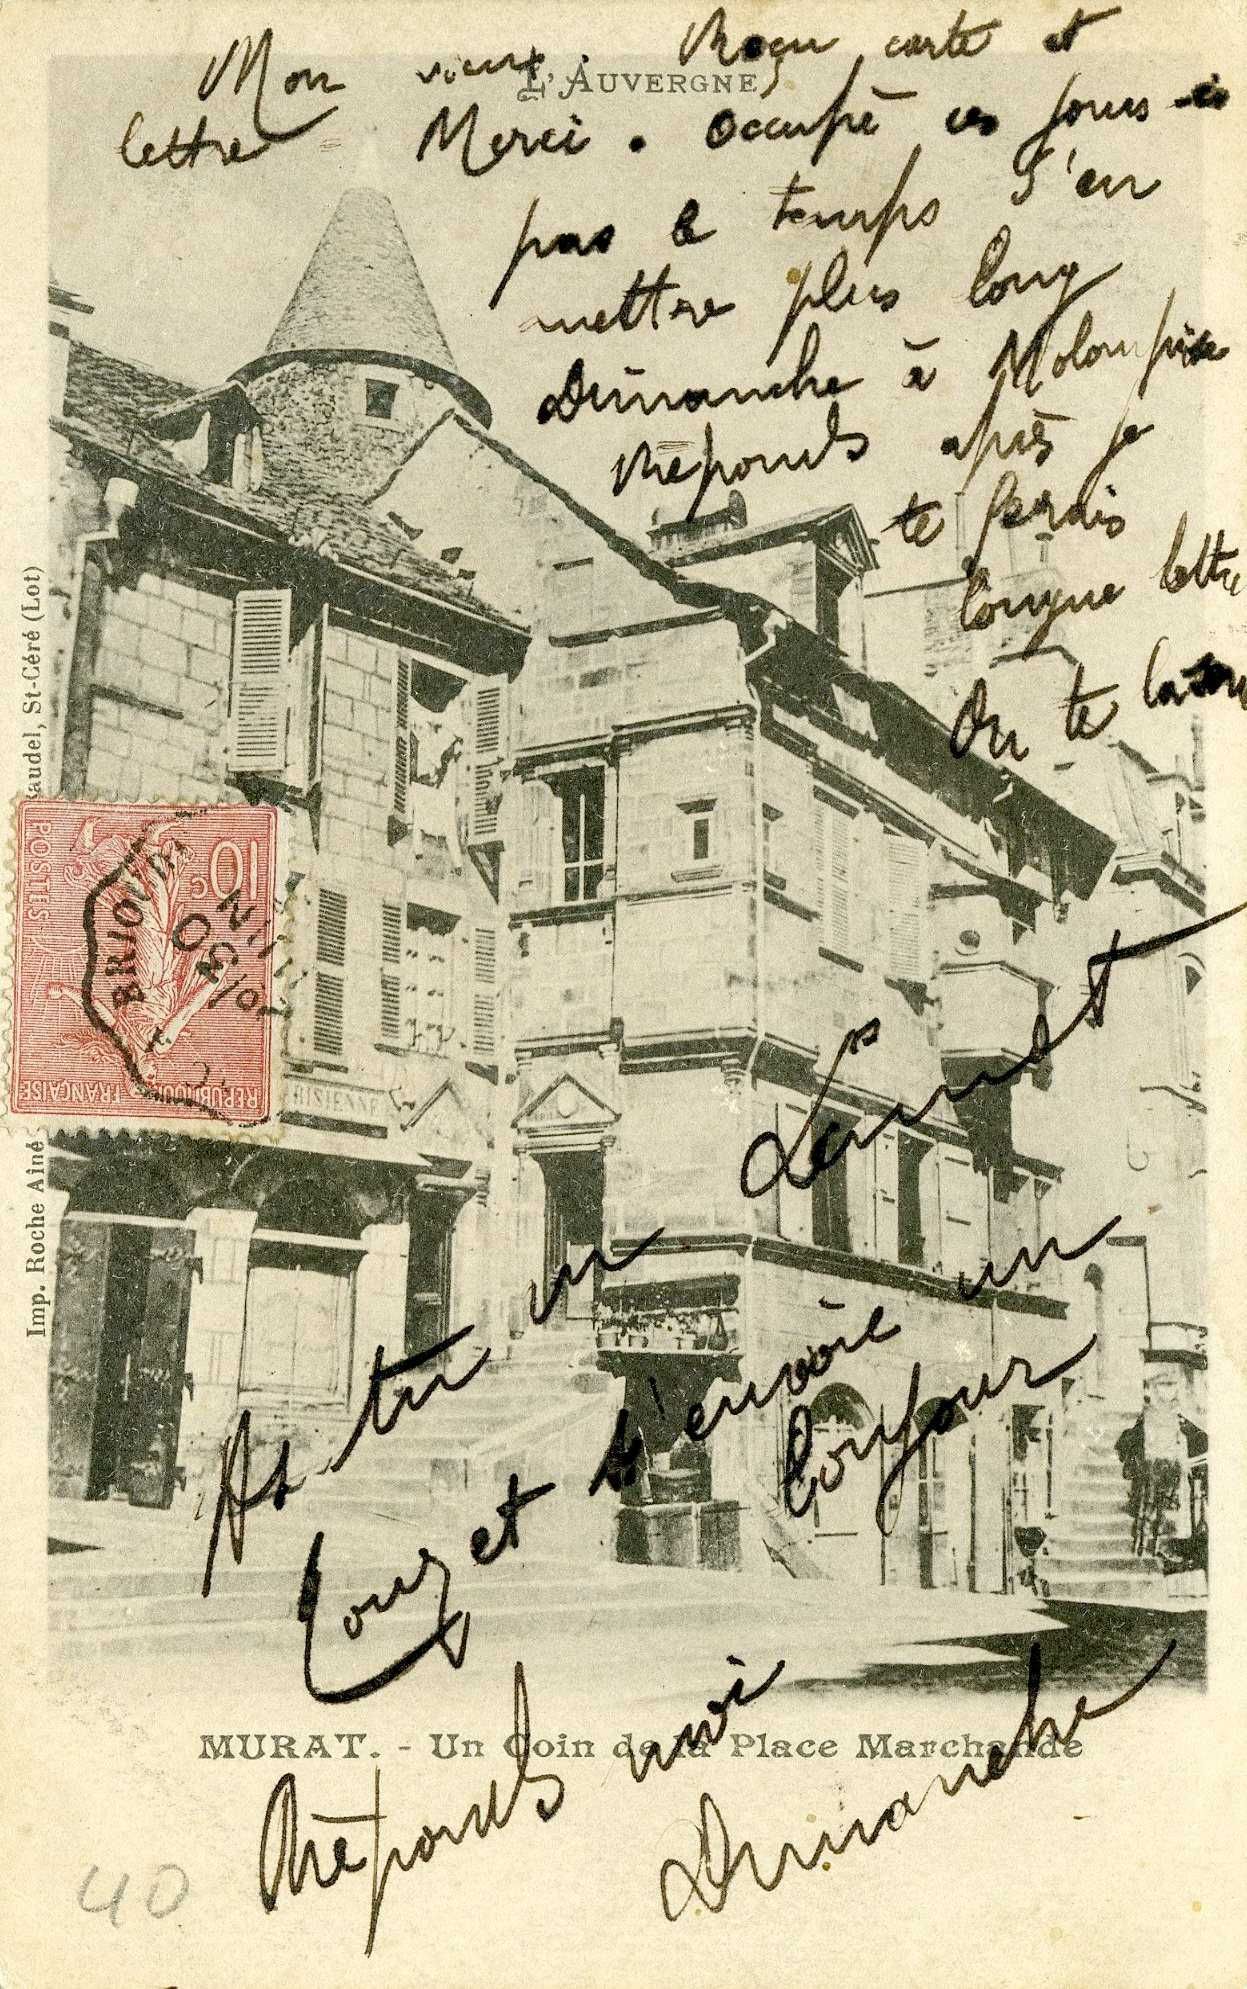 L'AUVERGNE
Mon vieux. Reçu carte et
lettre Merci. Occupé ces jours-ci
pas le temps d'en
mettre plus long
Dimanche à Molompize
Réponds après je
te ferais
longue lettre
On te
As-tu vu
Louz et t'envoie un
bonjour
Réponds moi
Dimanche
MURAT. - Un Coin de la Place Marchande
Imp. Roche Aîné
Baudel, St-Céré (Lot)
POSTES
10 c
REPUBLIQUE FRANÇAISE
BRIOUDE
RISIENNE
40